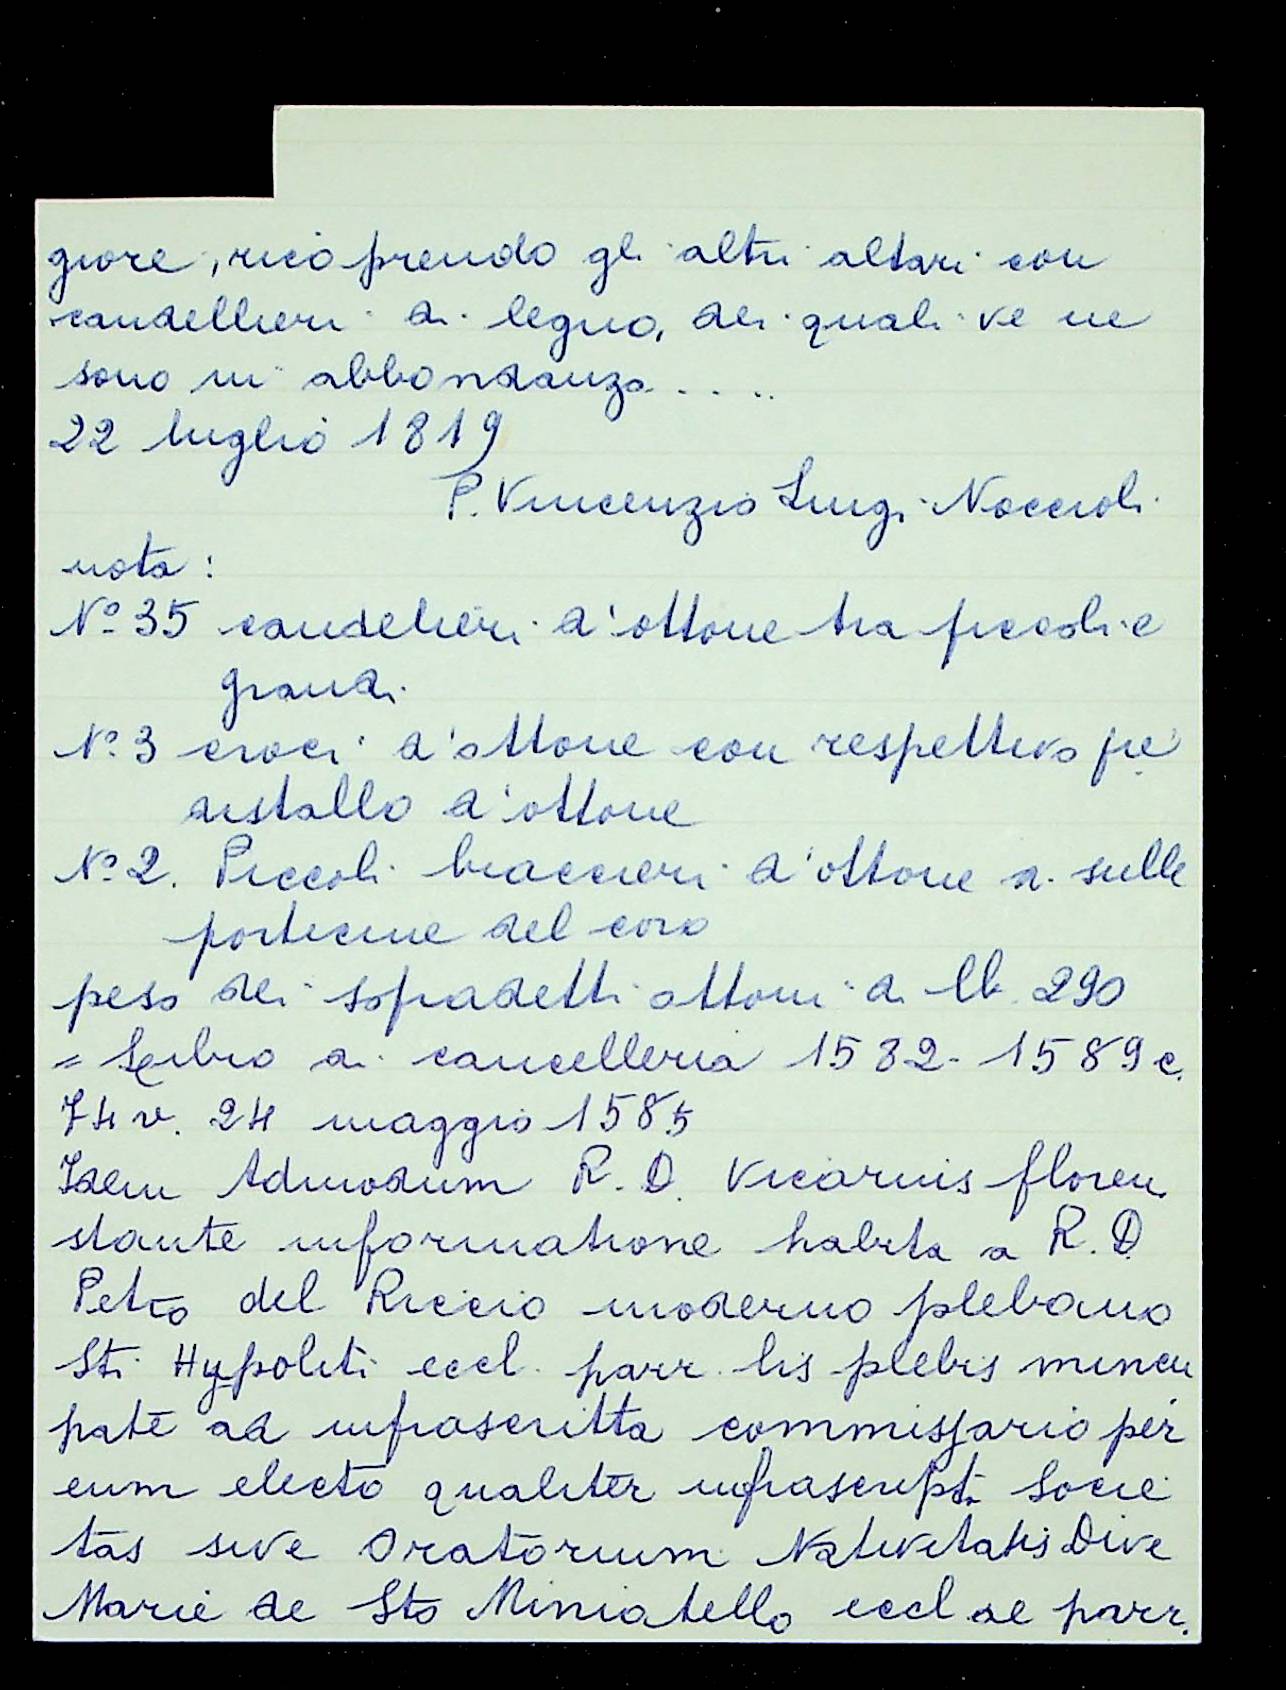 giore, ricoprendo gli altri altari con
candellieri di legno, dei quali ve ne
sono in abbondanza ....
22 luglio 1819
P. Vincenzio Luigi Noccioli
nota:
Nº 35 candelieri d'ottone tra piccoli e
grandi
Nº 3 croci d'ottone con respettivo pie
distallo d'ottone
Nº 2. Piccoli braccieri d'ottone di sulle
porticine del coro
peso dei sopradetti ottoni di lb. 290
= Libro di cancelleria 1582-1589 c.
74 v. 24 maggio 1585
Idem Admodum R. D. Vicarius floren.
stante informatione habita a R. D.
Petro del Riccio moderno plebano
Sti Hypoliti eccl. parr. lis plebis muncu
pate ad infrascritta commissario per
eum electo qualiter infrascripti Socie
tas sive Oratorium Nativitatis Dive
Marie de Sto Miniatello eccl ae parr.